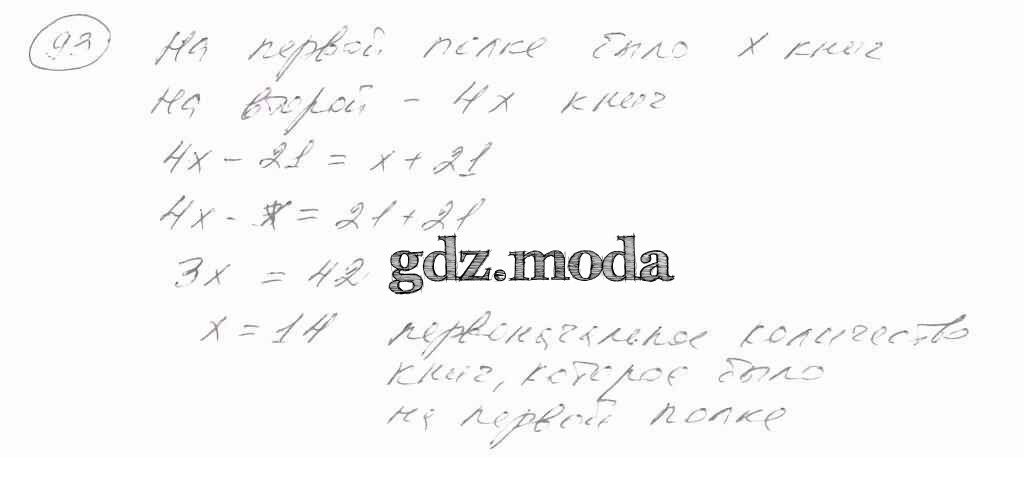 93 На первой полке было x книг
На второй - 4x книг
4x - 21 = x + 21
4x - x = 21 + 21
3x = 42
gdz.moda
x = 14 первоначальное количество
книг, которое было
на первой полке